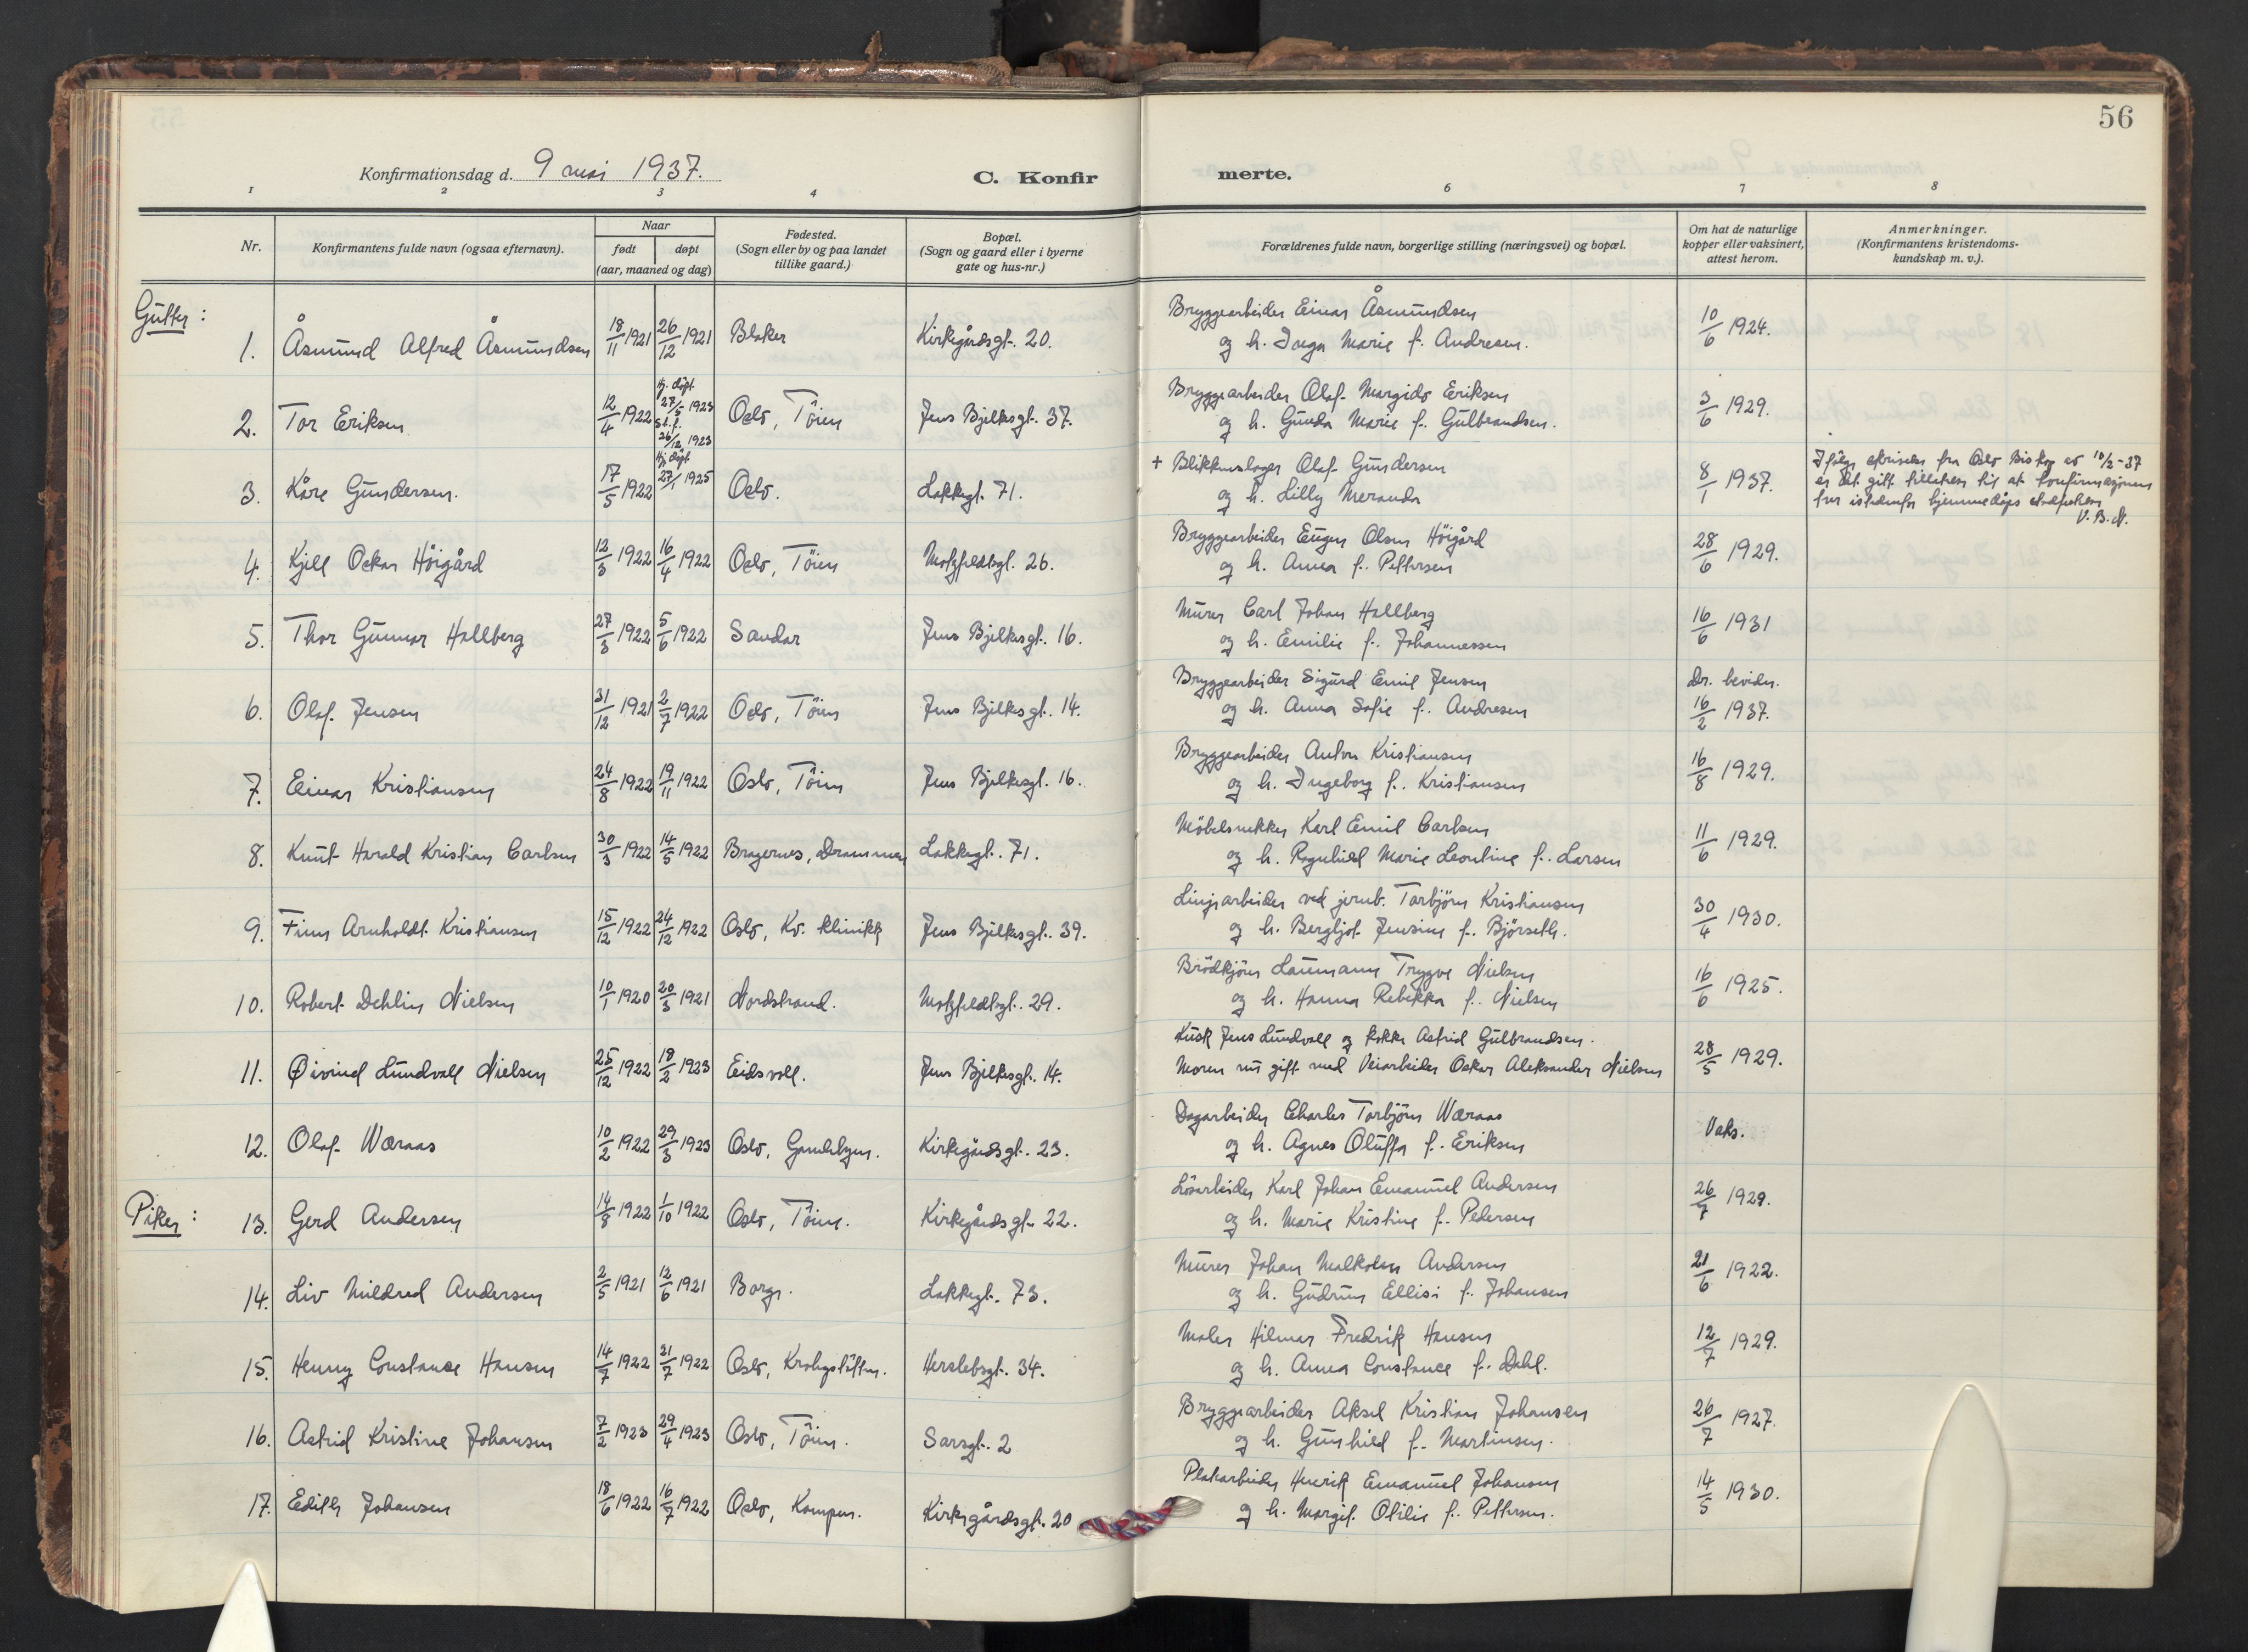 56
Konfirmationsdag d. 9 mai 1937.
C. Konfirmerte.
1 2 3 4 6 7 8
Nr.
Konfirmantens fulde navn (ogsaa efternavn).
Naar
født døpt
(aar, maaned og dag)
Fødested.
(Sogn eller by og paa landet
tillike gaard.)
Bopæl.
(Sogn og gaard eller i byerne
gate og hus-nr.)
Forældrenes fulde navn, borgerlige stilling (næringsvei) og bopæl.
Om hat de naturlige
kopper eller vaksinert,
attest herom.
Anmerkninger.
(Konfirmantens kristendoms-
kundskap m. v.).
Gutter:
1. Åsmund Alfred Åsmundsen 18/11 1921 26/12 1921 Blaker Kirkegårdsgt. 20. Bryggearbeider Einar Åsmundsen
og h. Inga Marie f. Andresen. 10/6 1924.
2. Tor Eriksen 12/4 1922 Hj. døpt 27/5 1923 st. f. 26/12 1923 Oslo, Töien Jens Bjelkesgt. 37. Bryggearbeider Olaf Margido Eriksen
og h. Gunda Marie f. Gulbrandsen. 3/6 1929.
3. Kåre Gundersen. 17/5 1922 Hj. døpt 27/1 1925 Oslo. Lakkegt. 71. + Blikkenslager Olaf Gundersen
og h. Lilly Meranda 8/1 1937.
Ifølge skrivelse fra Oslo Biskop av 10/2-37
er det gitt tillatelse til at konfirmasjonen
trer istedenfor hjemmedåps stadfestelse
V. B. N.
4. Kjell Oskar Höigård 12/3 1922 16/4 1922 Oslo, Töien Motzfeldtsgt. 26. Bryggearbeider Eugen Olsen Höigård
og h. Anna f. Pettersen 28/6 1929.
5. Thor Gunnar Hallberg 27/3 1922 5/6 1922 Sandar Jens Bjelkesgt. 16. Murer Carl Johan Hallberg
og h. Emilie f. Johannessen 16/6 1931
6. Olaf Jensen 31/12 1921 2/7 1922 Oslo, Töien Jens Bjelkesgt. 14. Bryggearbeider Sigurd Emil Jensen
og h. Anna Sofie f. Andresen Dr. bevidn. 16/2 1937.
7. Einar Kristiansen 24/8 1922 19/11 1922 Oslo, Töien Jens Bjelkesgt. 16. Bryggearbeider Anton Kristiansen
og h. Ingeborg f. Kristiansen 16/8 1929.
8. Knut Harald Kristian Carlsen 30/3 1922 14/5 1922 Bragernes, Drammen Lakkegt. 71. Möbelsnekker Karl Emil Carlsen
og h. Ragnhild Marie Leontine f. Larsen 11/6 1929.
9. Finn Arnholdt Kristiansen 15/12 1922 24/12 1922 Oslo, Kv. klinikk Jens Bjelkesgt. 39. Linjearbeider ved jernb. Torbjörn Kristiansen
og h. Bergljot Jensine f. Björseth. 30/4 1930.
10. Robert Dehlin Nielsen 10/1 1920 20/3 1921 Nordstrand. Motzfeldtsgt. 29. Brödkjörer Laumann Trygve Nielsen
og h. Hanna Rebekka f. Nielsen 16/6 1925.
11. Øivind Lundvall Nielsen 25/12 1922 18/2 1923 Eidsvoll. Jens Bjelkesgt. 14. Kusk Jens Lundvall og kokke Astrid Gulbrandsen.
Moren nu gift med Veiarbeider Oskar Aleksander Nielsen 28/5 1929.
12. Olaf Wæraas 10/2 1922 29/3 1923 Oslo, Gamlebyen. Kirkegårdsgt. 23. Dagarbeider Charles Torbjörn Wæraas
og h. Agnes Oluffa f. Eriksen Vaks.
Piker:
13. Gerd Andersen 14/8 1922 1/10 1922 Oslo, Töien. Kirkegårdsgt. 22. Løsarbeider Karl Johan Emanuel Andersen
og h. Marie Kristine f. Pedersen 26/7 1929.
14. Liv Mildred Andersen 2/5 1921 12/6 1921 Borge. Lakkegt. 73. Murer Johan Malkolm Andersen
og h. Gudrun Ellisi f. Johansen 21/6 1922.
15. Henny Constance Hansen 14/7 1922 21/7 1922 Oslo, Krohgstötten. Herslebsgt. 34. Maler Hilmar Fredrik Hansen
og h. Anna Constance f. Dahl. 12/7 1929.
16. Astrid Kristine Johansen 7/2 1923 29/4 1923 Oslo, Töien. Sarsgt. 2 Bryggearbeider Aksel Kristian Johansen
og h. Gunhild f. Martinsen. 26/7 1927.
17. Edith Johansen 18/6 1922 16/7 1922 Oslo, Kampen. Kirkegårdsgt. 20 Platearbeider Henrik Emanuel Johansen
og h. Margit Otilie f. Pettersen. 14/5 1930.